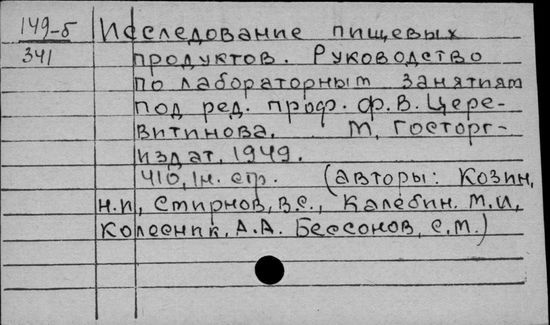 149-5 Исследование пищевых
341 продуктов. Руководство
по лабораторным занятиям
под ред. проф. Ф.В. Цере-
витинова. М, Госторг-
издат, 1949.
410, 1н. стр. (авторы: Козин,
Н.И, Смирнов, В.С., Калебин. М.И,
Колесник, А.А. Бессонов, С.М.)